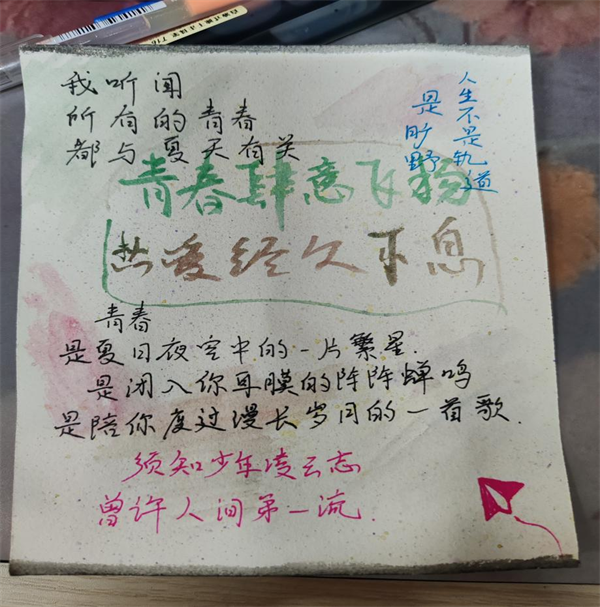 我听闻
所有的青春
都与夏天有关
人生不是轨道
是旷野
青春肆意飞扬
热爱经久不息
青春
是夏日夜空中的一片繁星.
是闭入你耳膜的阵阵蝉鸣
是陪你度过漫长岁月的一首歌.
须知少年凌云志
曾许人间第一流